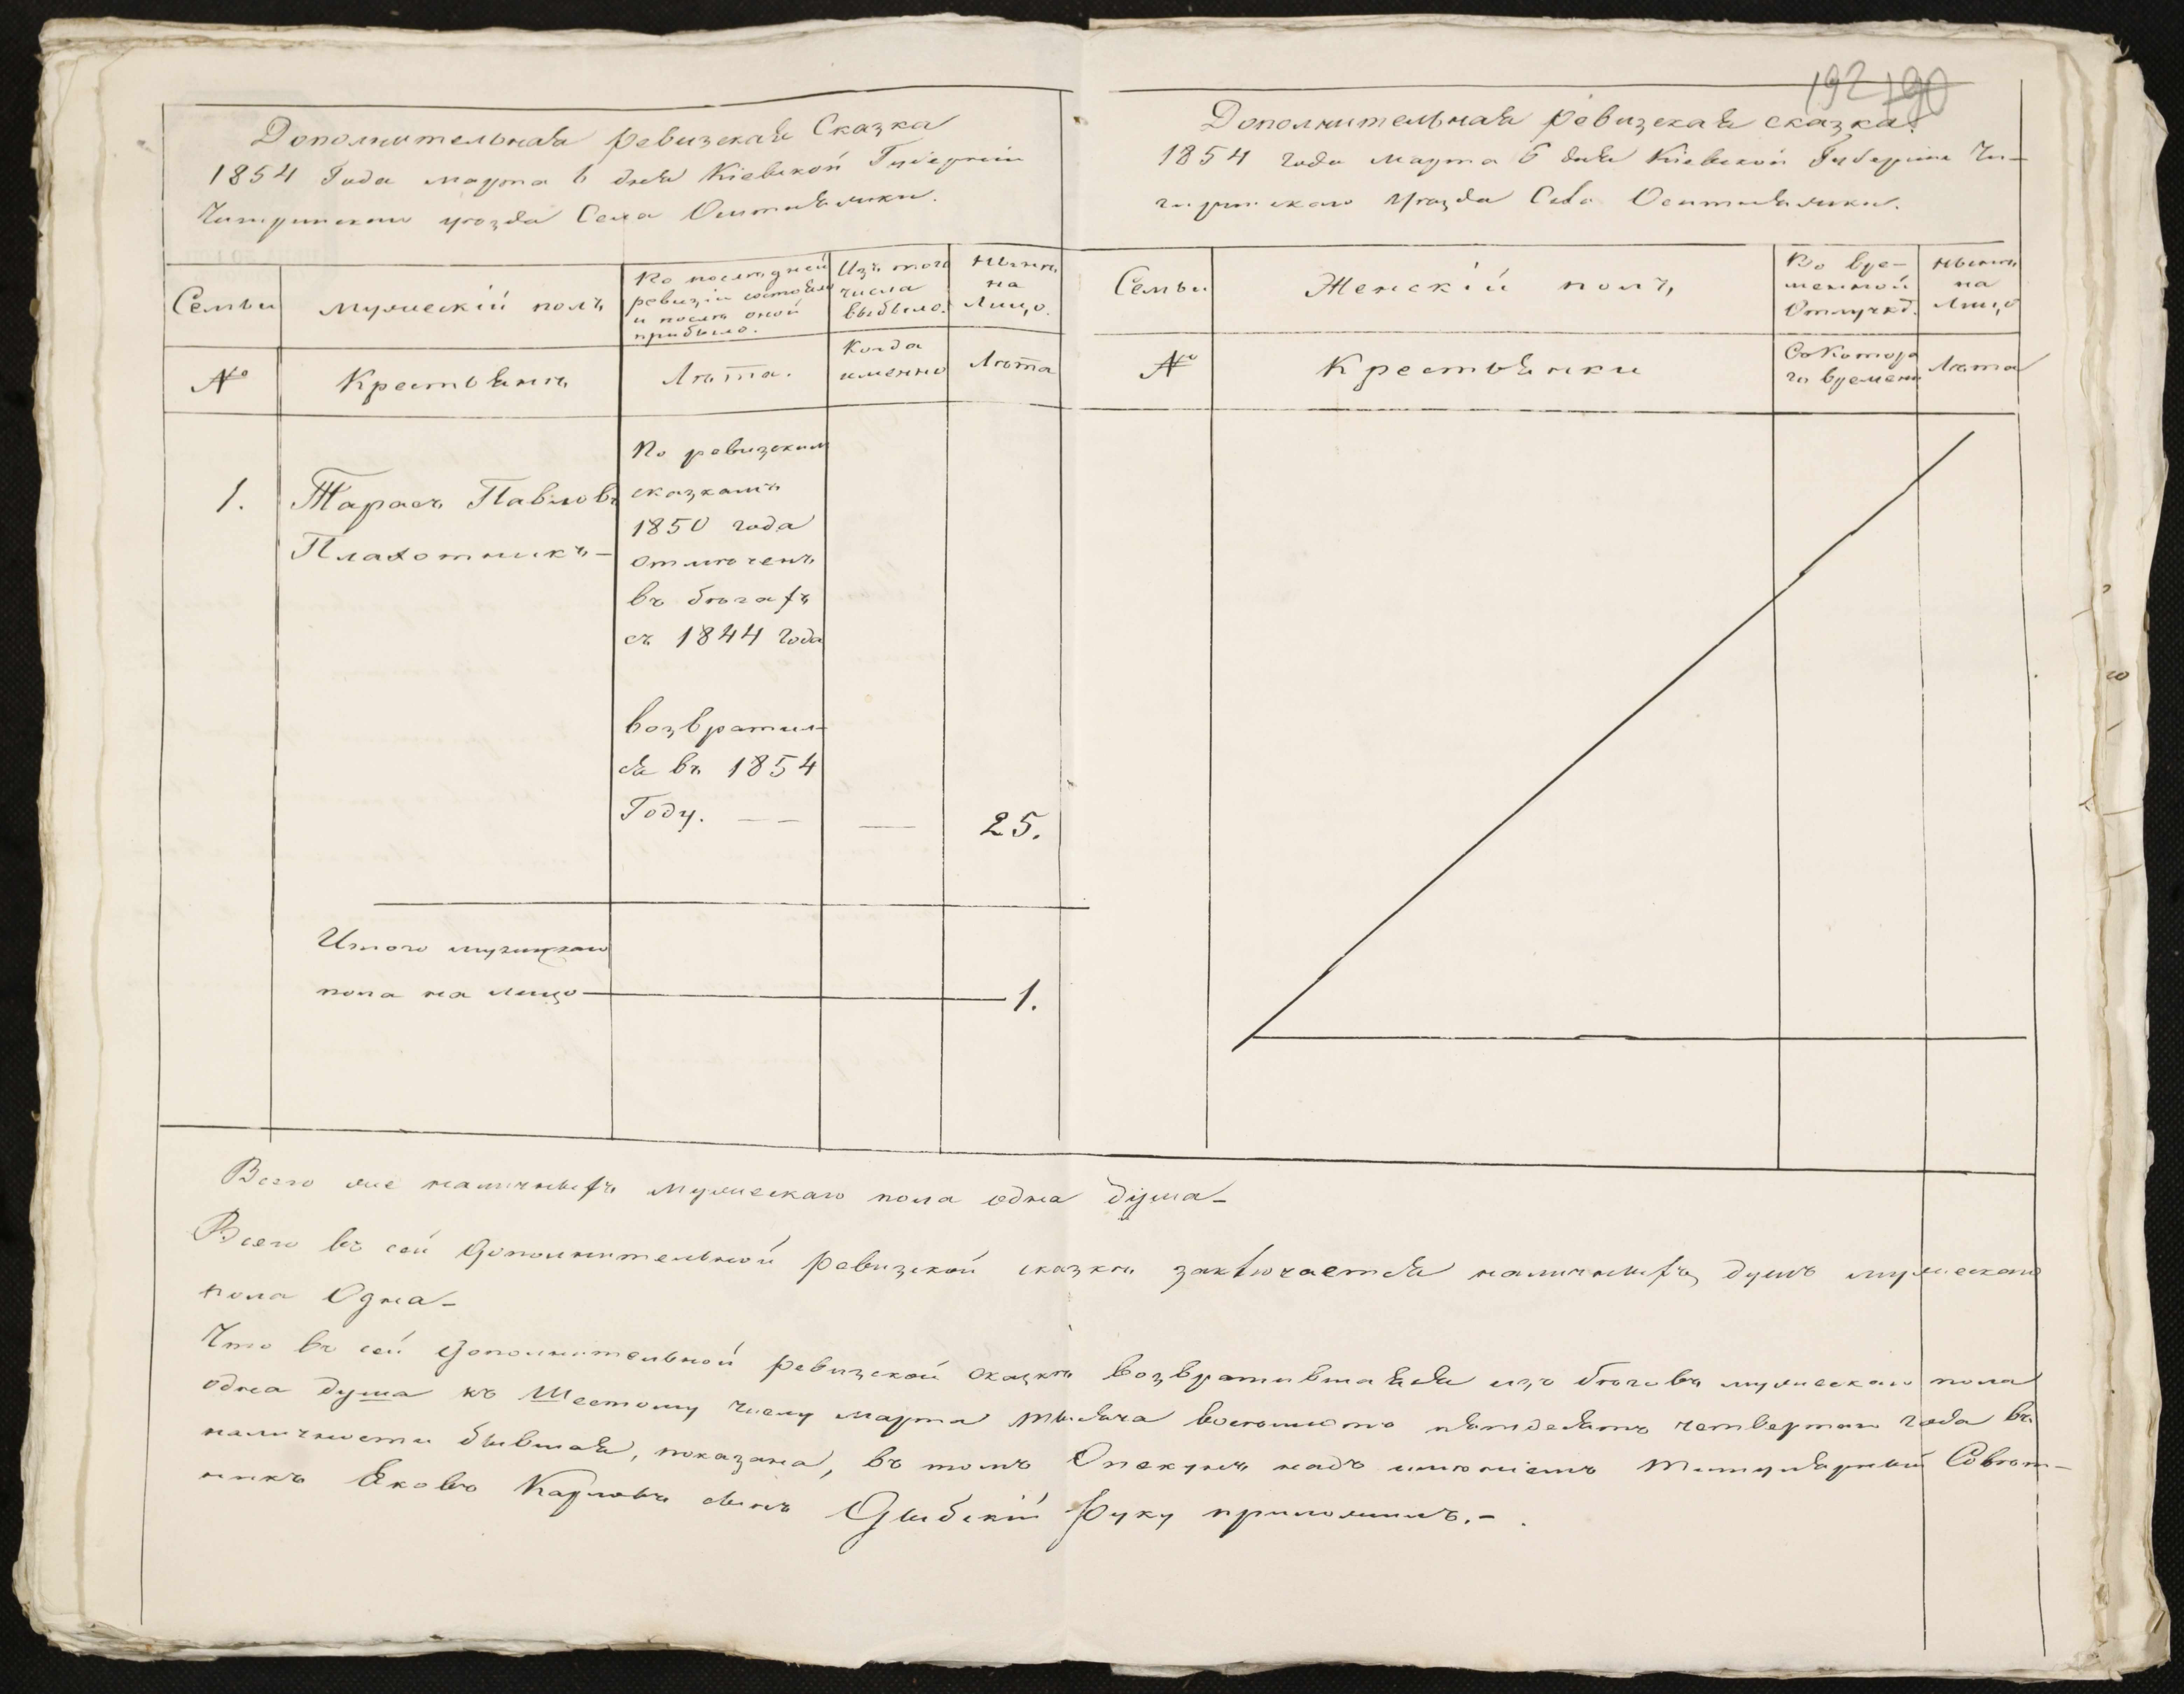 Дополнительная ревизская Сказка
1854 Года марта 6 дня Кіевской Губерніи
Чигиринскаго уезда Села Оситняжки.
Семьи
мужескій полъ
По последней
ревизіи состояло
и после оной
прибыло.
Изъ того
числа
выбыло.
Ныне
на
Лицо.
№
Крестьянъ
Лѣта.
Когда
именно
Лѣта
1.
Тарасъ Павловъ
Плахотникъ —
По ревизским
сказкамъ
1850 года
отмеченъ
въ бѣгахъ
съ 1844 года
возвратил-
ся въ 1854
Году. — —
—
25.
Итого мужескаго
пола на лицо — 1.
192 190
Дополнительная ревизская сказка.
1854 года марта 6 дня Кіевской Губерніи Чи-
гиринскаго Уезда Села Оситняжки.
Семьи
Женскій полъ,
Во вре-
менной
Отлучкѣ.
Ныне
на
Лицо
№
Крестьянки
Съ котора
го времени
Лѣта
Всего же наличныхъ мужескаго пола одна душа —
Всего въ сей дополнительной ревизской сказкѣ заключается наличныхъ душъ мужескаго
пола Одна —
Что въ сей дополнительной ревизской сказкѣ возвратившаяся изъ бѣговъ мужескаго пола
одна душа къ Шестому числу марта тысяча восемьсотъ пятдесятъ четвертаго года въ
наличности бывшая, показана, въ томъ Опекунъ надъ имѣніемъ Титулярный Совѣт-
никъ Яковъ Карловъ сынъ Руку приложилъ. —